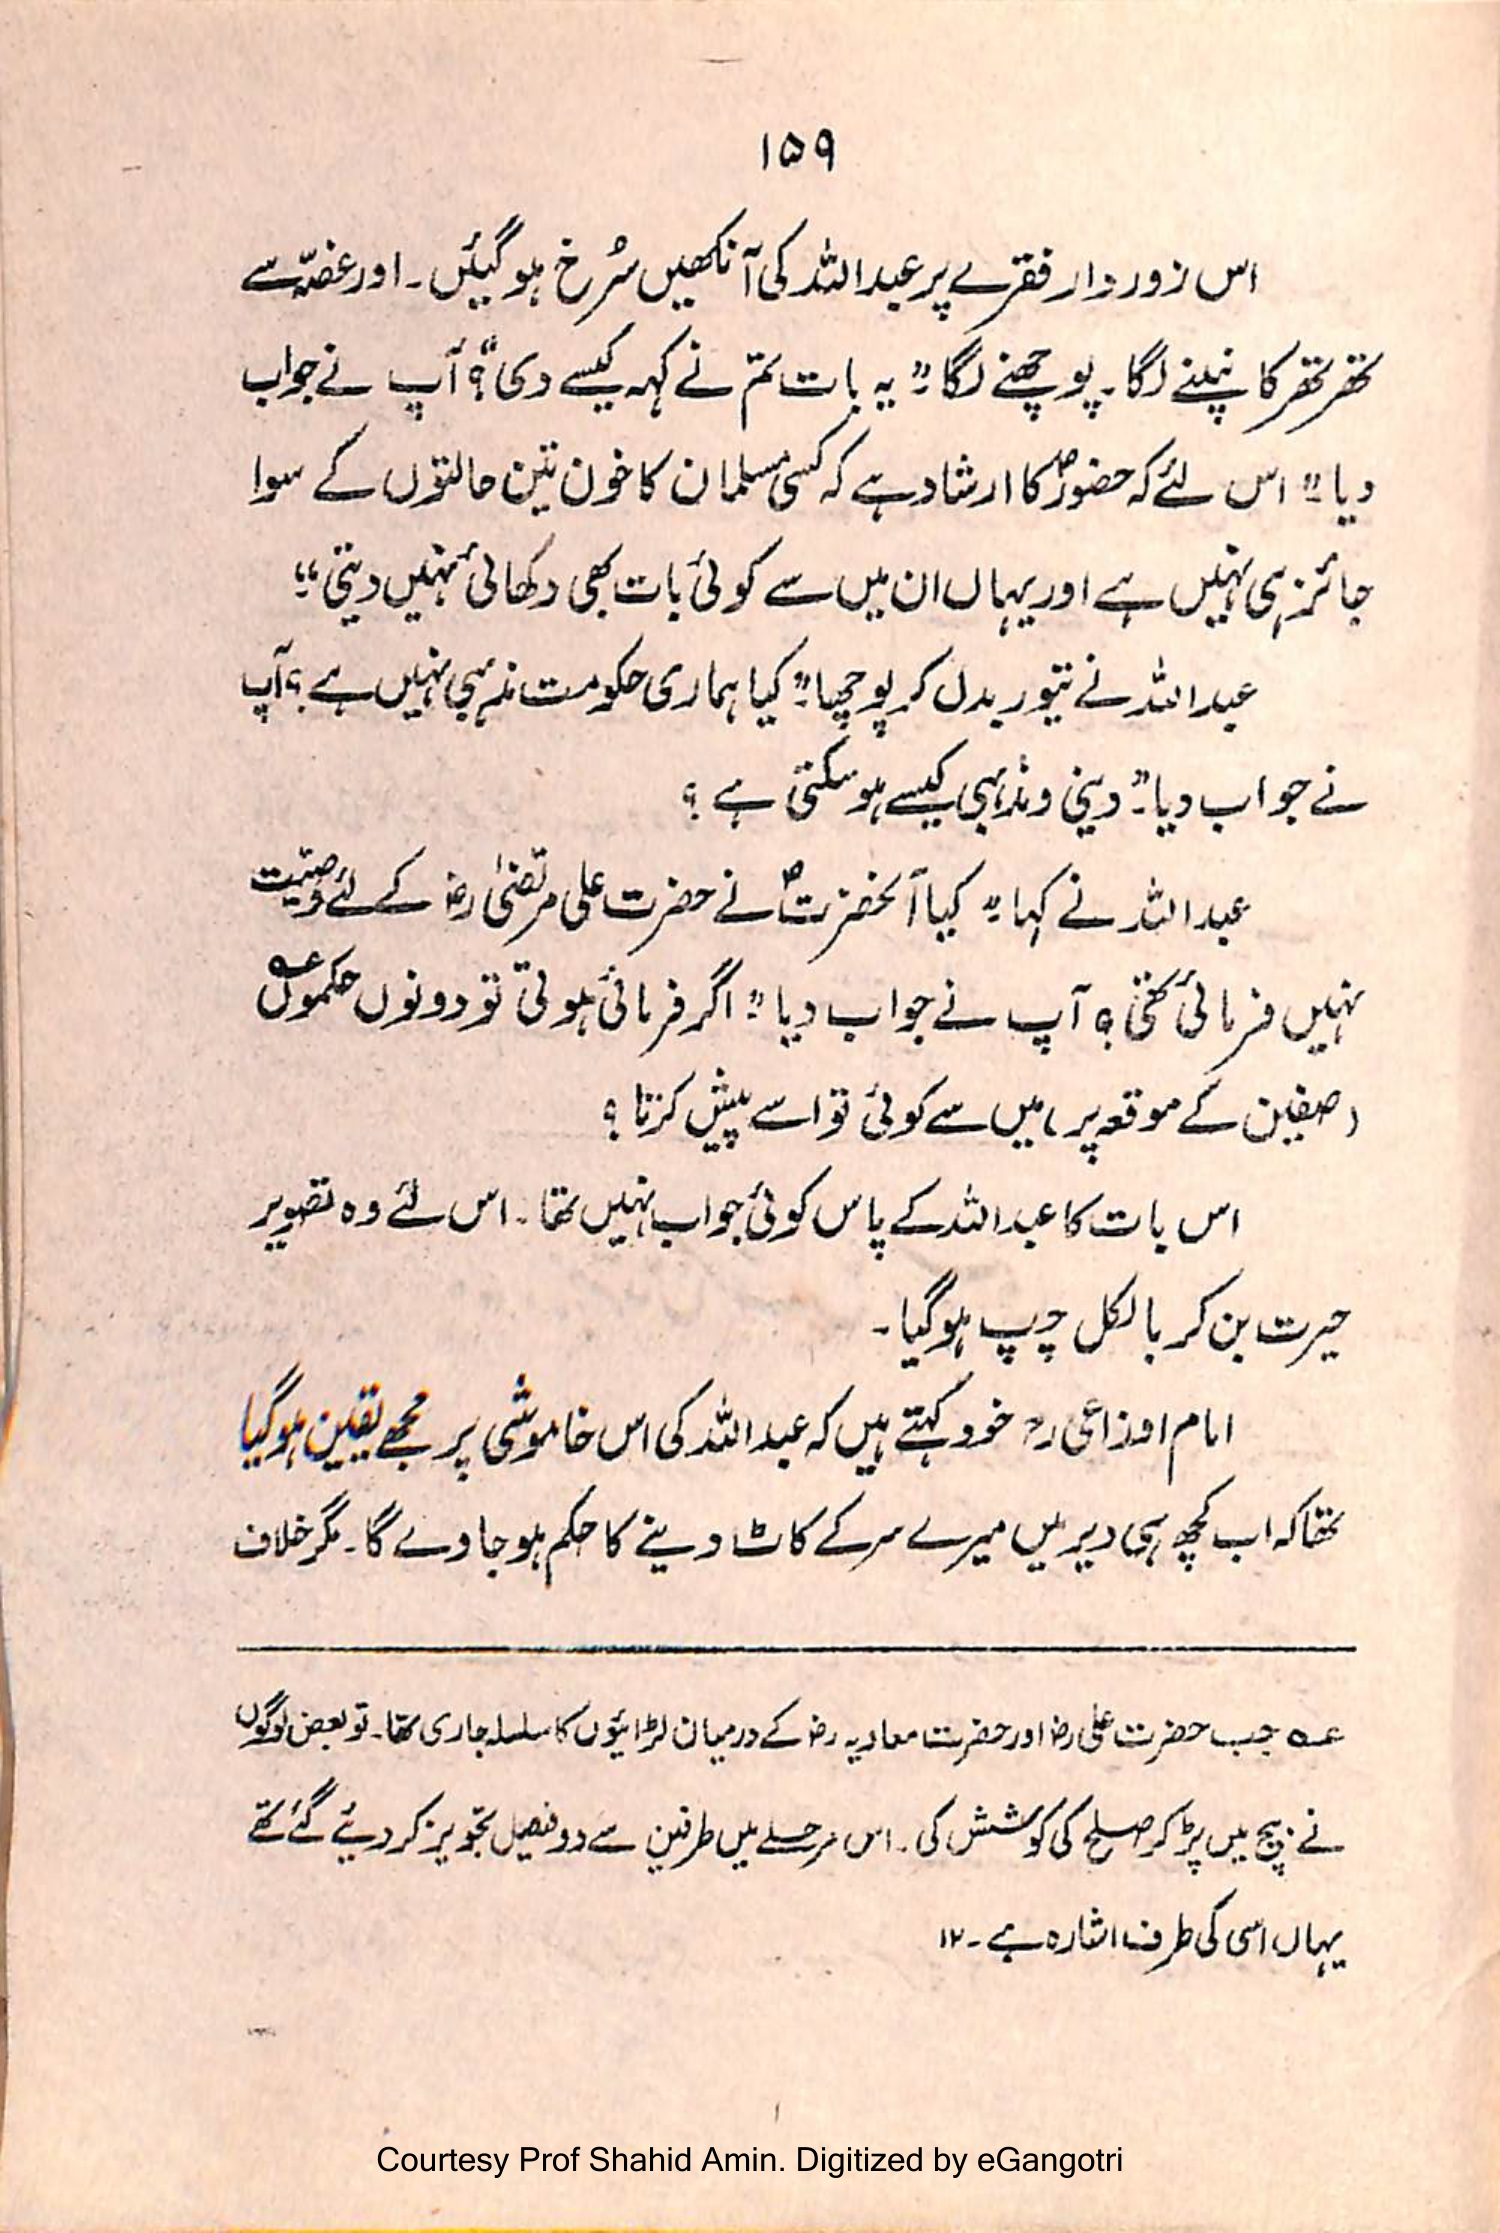 ۱۵۹
اس زوردار فقرے پر عبداللہ کی آنکھیں سُرخ ہوگئیں۔ اور غصّہ سے
تھر تھر کانپنے لگا۔ پوچھنے لگا۔" یہ بات تم نے کہہ کیسے دی؟" آپ نے جواب
دیا۔" اس لئے کہ حضورؐ کا ارشاد ہے کہ کسی مسلمان کا خون تین حالتوں کے سوا
جائز ہی نہیں ہے اور یہاں ان میں سے کوئی بات بھی دکھائی نہیں دیتی۔"
عبداللہ نے تیور بدل کر پوچھا۔" کیا ہماری حکومت مذہبی نہیں ہے؟ آپ
نے جواب دیا۔" دینی و مذہبی کیسے ہو سکتی ہے ؟
عبداللہ نے کہا۔" کیا آنحضرتؐ نے حضرت علی مرتضیٰ رضؓ کے لئے وصیّت
نہیں فرمائی تھی؟ آپ نے جواب دیا۔" اگر فرمائی ہوتی تو دونوں حکموں عہ
(صفین کے موقعہ پر) میں سے کوئی تو اسے پیش کرتا ؟
اس بات کا عبداللہ کے پاس کوئی جواب نہیں تھا۔ اس لئے وہ تصویر
حیرت بن کر بالکل چپ ہوگیا۔
امام اوزاعی رح خود کہتے ہیں کہ عبداللہ کی اس خاموشی پر مجھے یقین ہوگیا
تھا کہ اب کچھ ہی دیر میں میرے سر کے کاٹ دینے کا حکم ہو جاوے گا۔ مگر خلاف
عہ جب حضرت علی رض اور حضرت معاویہ رض کے درمیان لڑائیوں کا سلسلہ جاری تھا۔ تو بعض لوگوں
نے بیچ میں پڑ کر صلح کی کوشش کی۔ اس مرحلے میں طرفین سے دو فیصل تجویز کر دیئے گئے تھے
یہاں اسی کی طرف اشارہ ہے۔ ۱۲
Courtesy Prof Shahid Amin. Digitized by eGangotri